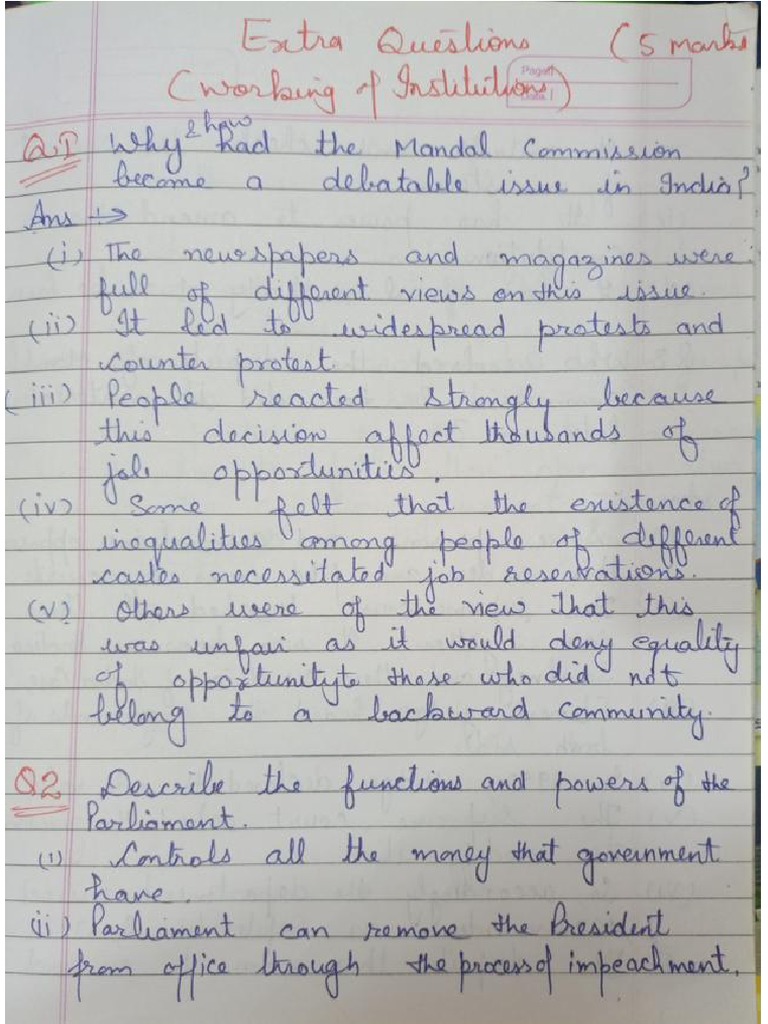 Extra Questions (5 marks
(Working of Institutions)
Page
Q.1 Why & how had the Mandal Commission
become a debatable issue in India?
Ans :→
(i) The newspapers and magazines were
full of different views on this issue.
(ii) It led to widespread protests and
counter protest.
(iii) People reacted strongly because
this decision affect thousands of
job opportunities.
(iv) Some felt that the existence of
inequalities among people of different
castes necessitated job reservations.
(v) Others were of the view that this
was unfair as it would deny equality
of opportunity to those who did not
belong to a backward community.
Q2 Describe the functions and powers of the
Parliament.
(i) Controls all the money that government
have.
(ii) Parliament can remove the President
from office through the process of impeachment.